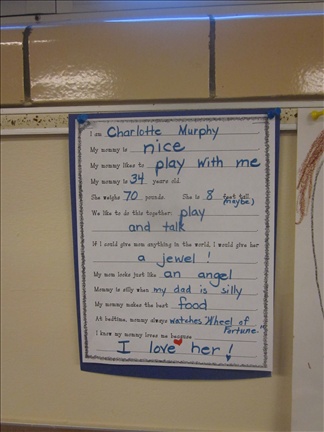 I am Charlotte Murphy
My mommy is nice
My mommy likes to play with me
My mommy is 34 years old.
She weighs 70 pounds. She is 8 feet tall.
(maybe)
We like to do this together: play
and talk
If I could give mom anything in the world, I would give her
a jewel!
My mom looks just like an angel
Mommy is silly when my dad is silly
My mommy makes the best food
At bedtime, mommy always watches "Wheel of
Fortune."
I know my mommy loves me because
I love her!